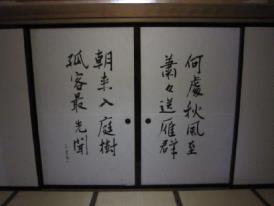 何處秋風至
蕭々送雁群
朝来入庭樹
孤客最先聞